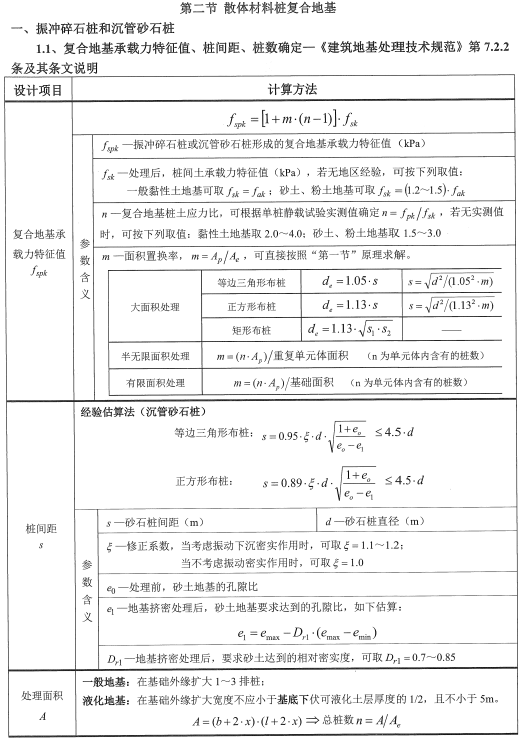 第二节 散体材料桩复合地基
一、振冲碎石桩和沉管砂石桩
1.1、复合地基承载力特征值、桩间距、桩数确定—《建筑地基处理技术规范》第 7.2.2
条及其条文说明
设计项目
计算方法
复合地基承
载力特征值
f_spk
f_spk = [1 + m·(n−1)]·f_sk
参数含义
f_spk —振冲碎石桩或沉管砂石桩形成的复合地基承载力特征值（kPa）
f_sk —处理后，桩间土承力特征值（kPa），若无地区经验，可按下列取值：
一般黏性土地基可取 f_sk = f_ak；砂土、粉土地基可取 f_sk = (1.2~1.5)·f_ak
n —复合地基桩土应力比，可根据单桩静载试验实测值确定 n = f_pk/f_sk，若无实测值
时，可按下列取值：黏性土地基取 2.0~4.0；砂土、粉土地基取 1.5~3.0
m —面积置换率，m = A_p/A_e，可直接按照“第一节”原理求解。
大面积处理
等边三角形布桩 d_e = 1.05·s s = √(d²/(1.05²·m))
正方形布桩 d_e = 1.13·s s = √(d²/(1.13²·m))
矩形布桩 d_e = 1.13·√(s₁·s₂) ——
半无限面积处理 m = (n·A_p)/重复单元体面积 （n 为单元体内含有的桩数）
有限面积处理 m = (n·A_p)/基础面积 （n 为单元体内含有的桩数）
桩间距
s
经验估算法（沉管砂石桩）
等边三角形布桩：s = 0.95·ξ·d·√((1+e_o)/(e_o−e_1)) ≤ 4.5·d
正方形布桩： s = 0.89·ξ·d·√((1+e_o)/(e_o−e_1)) ≤ 4.5·d
参数含义
s —砂石桩间距（m） d —砂石桩直径（m）
ξ —修正系数，当考虑振动下沉密实作用时，可取 ξ = 1.1~1.2；
当不考虑振动密实作用时，可取 ξ = 1.0
e₀ —处理前，砂土地基的孔隙比
e₁ —地基挤密处理后，砂土地基要求达到的孔隙比，如下估算：
e₁ = e_max − D_r1·(e_max − e_min)
D_r1 —地基挤密处理后，要求砂土达到的相对密实度，可取 D_r1 = 0.7~0.85
处理面积
A
一般地基：在基础外缘扩大 1~3 排桩；
液化地基：在基础外缘扩大宽度不应小于基底下伏可液化土层厚度的 1/2，且不小于 5m。
A = (b+2·x)·(l+2·x) ⇒ 总桩数 n = A/A_e